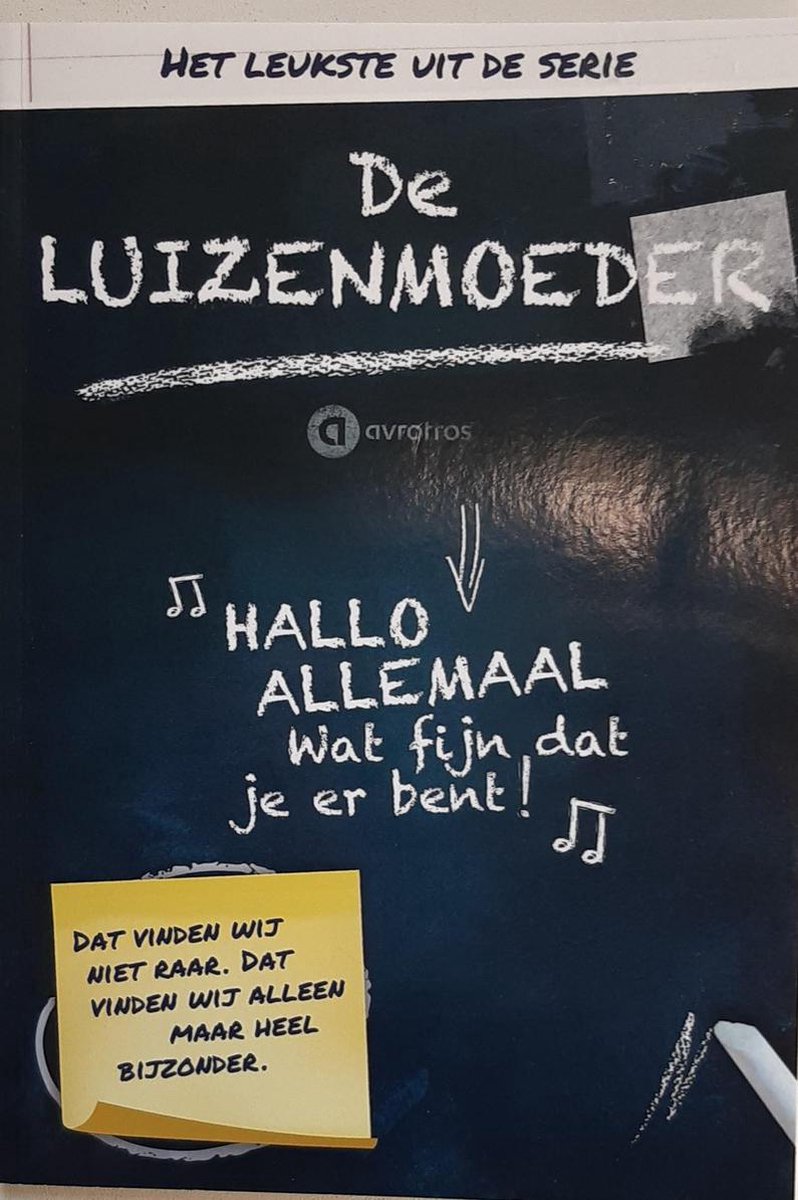 HET LEUKSTE UIT DE SERIE
De
LUIZENMOEDER
a avrotros
HALLO
ALLEMAAL
Wat fijn dat
je er bent!
DAT VINDEN WIJ
NIET RAAR. DAT
VINDEN WIJ ALLEEN
MAAR HEEL
BIJZONDER.